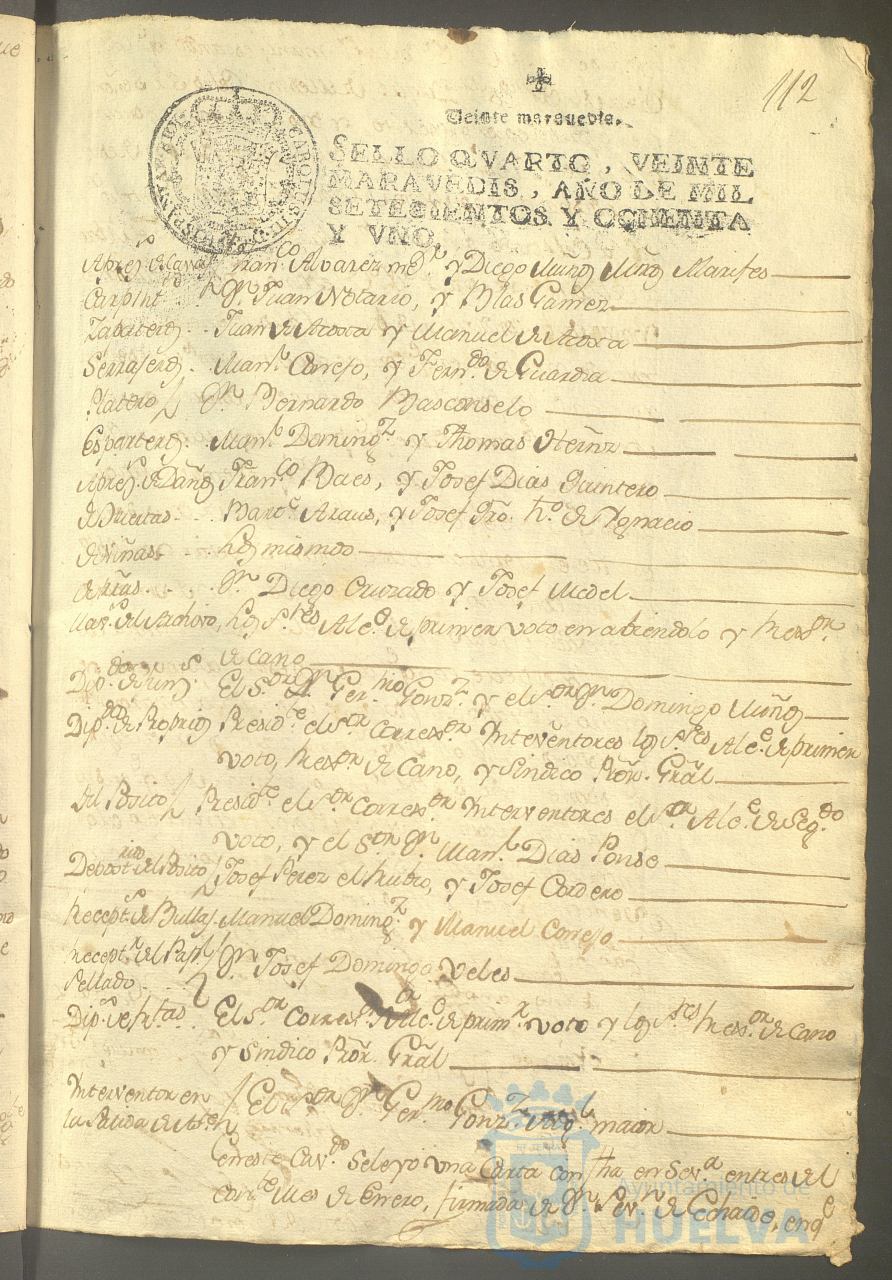 112
Veinte maravedis.
SELLO QVARTO, VEINTE
MARAVEDIS, AÑO DE MIL
SETECIENTOS Y OCHENTA
Y VNO.
CAROLUS III D G HISPANIAR REX
Fran.co Alvarez m.or y Diego Muños Marifes
Carpint.s D.n Juan Notario, y Blas Gamez
Zapateros.. Juan de Acosta y Manuel de Acosta
Serrajeros. Man.l Correjo, y Fern.do de Guardia
Platero D.n Bernardo Basconselo
Esparteros.. Man.l Doming.z y Thomas Hernz
Apres.s de Daños Fran.co Baes, y Josef Dias Quintero
de Huertas... Bart.e Araus, y Josef h.o de Ygnacio
de Viñas... Los mismos
D.n Diego Cruzado y Josef Medel
Llav.s del Archivo, Los S.res Alc.e de primer voto en abiendolo y Rex.or
de cano
Dip.dos El S.or D.n Ger.mo Gonz.z y el S.or D.n Domingo Muños
Dip.dos de Proprios Presid.te el S.or Corres.or Interventores los S.res Alc.e de primer
voto, Rex.or de Cano, y Sindico Prôr. Grâl
Del Posito Presid.te el S.or Corres.or Interventores el S.or Alc.e de Seg.do
voto, y el S.or D.n Man.l Dias Ponse
Deposit.rio del Posito Josef Perez el Rubio, y Josef Cordero
Recept.s de Bullas Manuel Doming.z y Manuel Correjo
Recept.r del Pap.l D.n Josef Domingo Veles
Sellado..
El S.or Corres.or Alc.e de prim.r voto y los S.res Rex.or de Cano
y Sindico Prôr. Grâl
Interventor en El S.or D.n Ger.mo Gonz.z maior
la Salida de
En este Cav.do Se leyo una Carta con fha en Sev.a en tres del
cor.te Mes de Enero, firmada de D.n de Echarde, en q.e
Ayuntamiento de
HUELVA